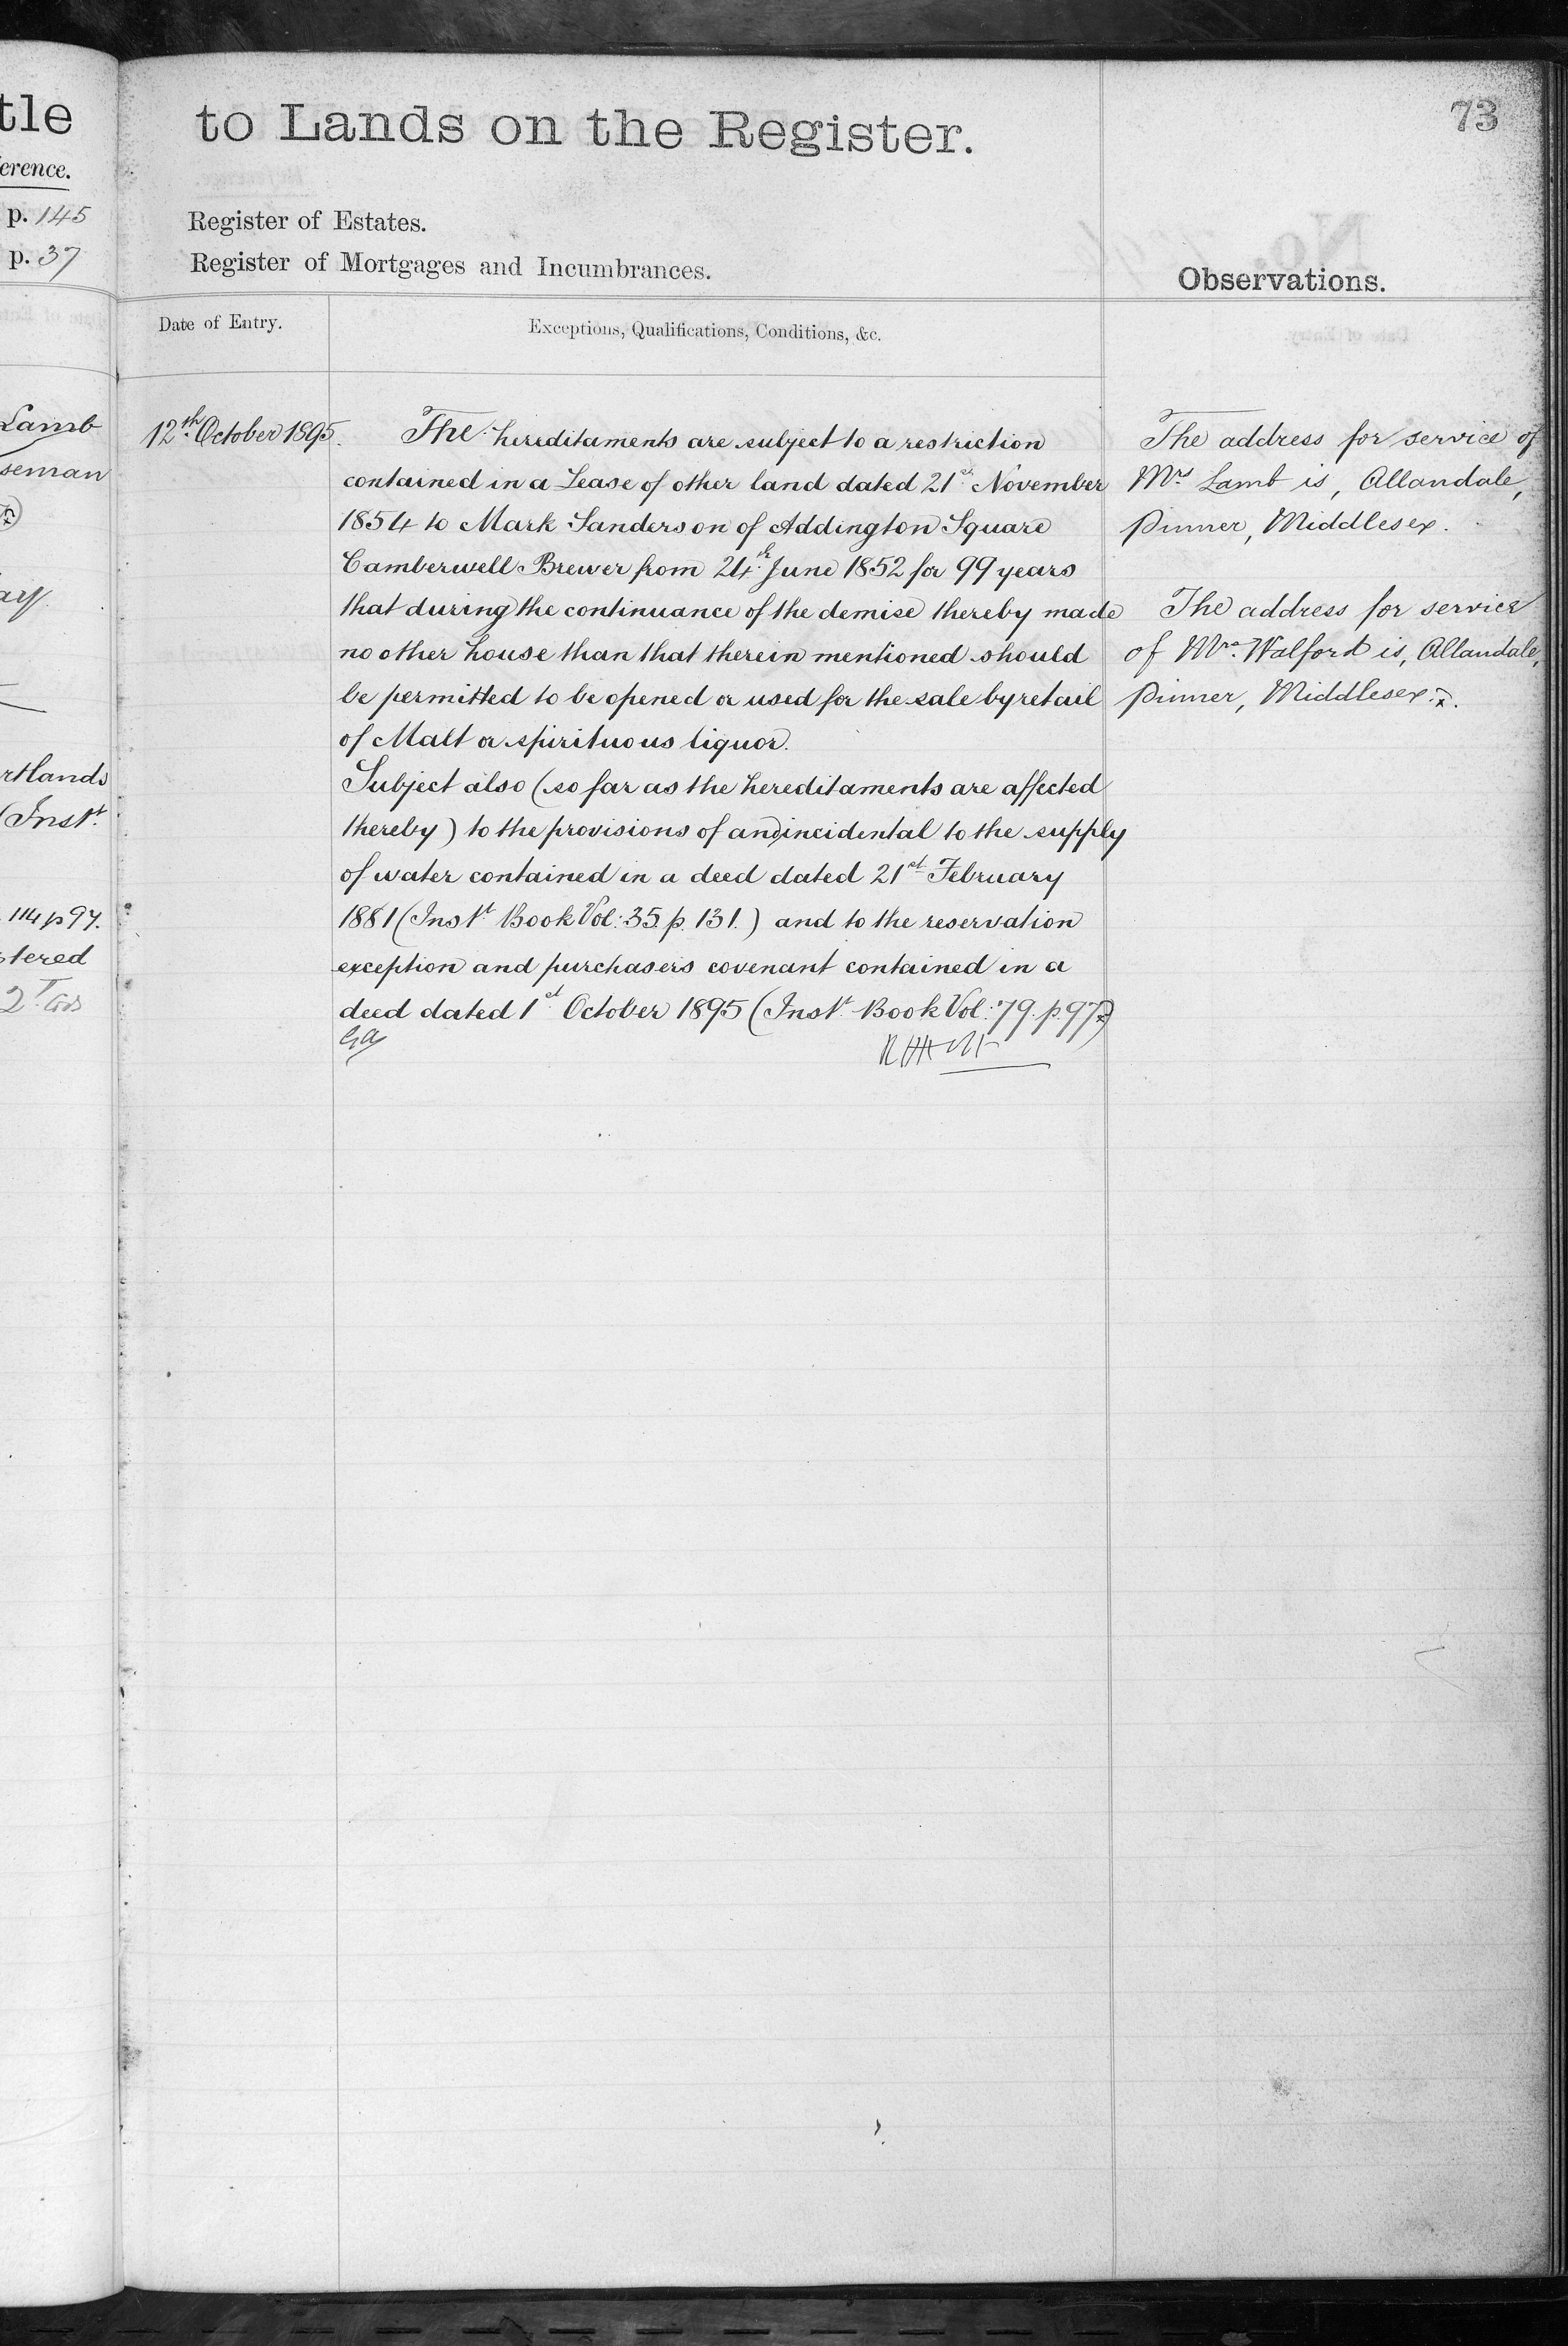 tle
erence.
p. 145
p. 37
Lamb
seman
rtlands
(Inst.t
114 p 97.
stered
to Lands on the Register.
73
Register of Estates.
Register of Mortgages and Incumbrances.
Observations.
Date of Entry.
Exceptions, Qualifications, Conditions, &c.
12th October 1895.
The hereditaments are subject to a restriction
contained in a Lease of other land dated 21st November
1854 to Mark Sanderson of Addington Square
Camberwell Brewer from 24th June 1852 for 99 years
that during the continuance of the demise thereby made
no other house than that therein mentioned should
be permitted to be opened or used for the sale by retail
of Malt or spirituous liquor.
Subject also (so far as the hereditaments are affected
thereby) to the provisions of and incidental to the supply
of water contained in a deed dated 21st February
1881 (Inst. Book Vol: 35. p. 131.) and to the reservation
exception and purchasers covenant contained in a
deed dated 1st October 1895 (Inst. Book Vol: 79. p. 97)
The address for service of
Mrs Lamb is, Allandale,
Pinner, Middlesex.
The address for service
of Mrs. Walford is, Allandale,
Pinner, Middlesex.